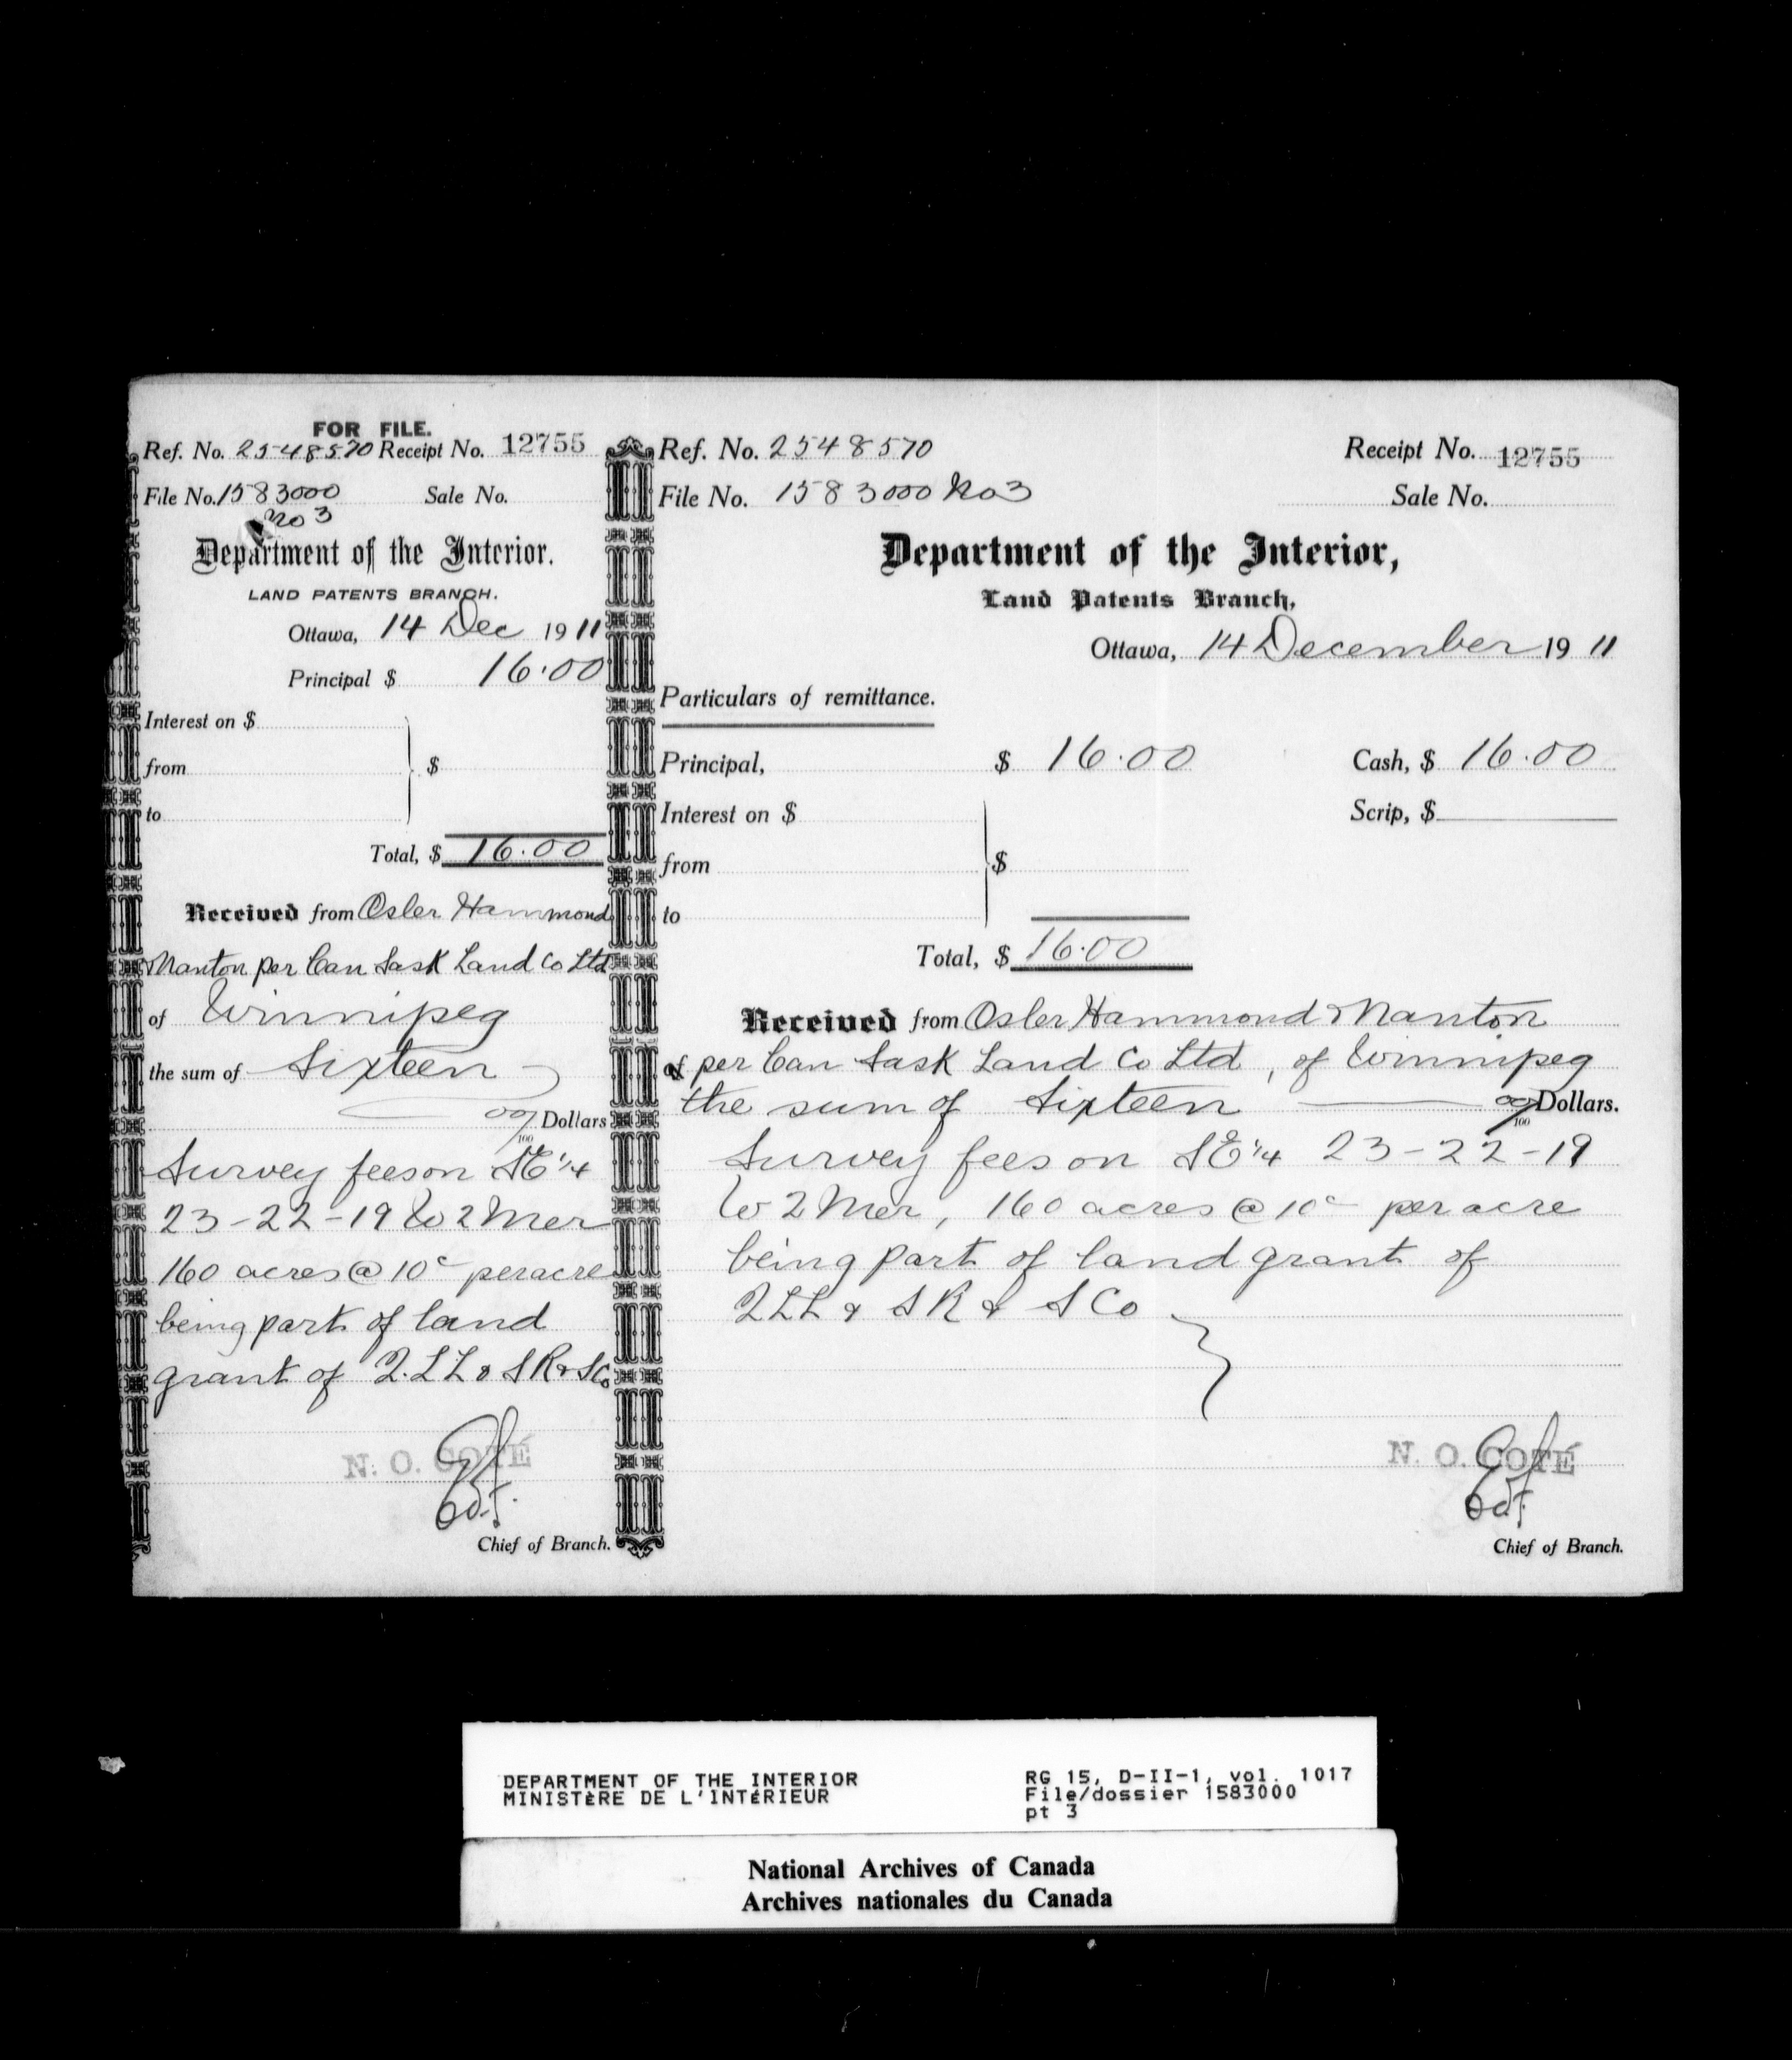 FOR FILE.
Ref. No. 2548570 Receipt No. 12755
File No. 1583000 Sale No.
No 3
Department of the Interior.
LAND PATENTS BRANCH.
Ottawa, 14 Dec 1911
Principal $ 16.00
Interest on $
from $
to
Total, $ 16.00
Received from Osler Hammond
Nanton per Can Sask Land Co Ltd
of Winnipeg
the sum of Sixteen
00/100 Dollars
Survey fees on SE 1/4
23-22-19 W 2 Mer
160 acres @ 10c per acre
being part of land
grant of Q.L.L & S R & S Co
N. O. COTÉ
Chief of Branch.
Ref. No. 2548570 Receipt No. 12755
File No. 1583000 No 3 Sale No.
Department of the Interior,
Land Patents Branch,
Ottawa, 14 December 1911
Particulars of remittance.
Principal, $ 16.00 Cash, $ 16.00
Interest on $ Scrip, $
from $
to
Total, $ 16.00
Received from Osler Hammond & Nanton
of per Can Sask Land Co Ltd, of Winnipeg
the sum of Sixteen 00/100 Dollars.
Survey fees on SE 1/4 23-22-19
W 2 Mer, 160 acres @ 10c per acre
being part of land grant of
Q L L & S R & S Co
N. O. COTÉ
Chief of Branch.
DEPARTMENT OF THE INTERIOR RG 15, D-II-1, vol. 1017
MINISTÈRE DE L'INTÉRIEUR File/dossier 1583000
pt 3
National Archives of Canada
Archives nationales du Canada